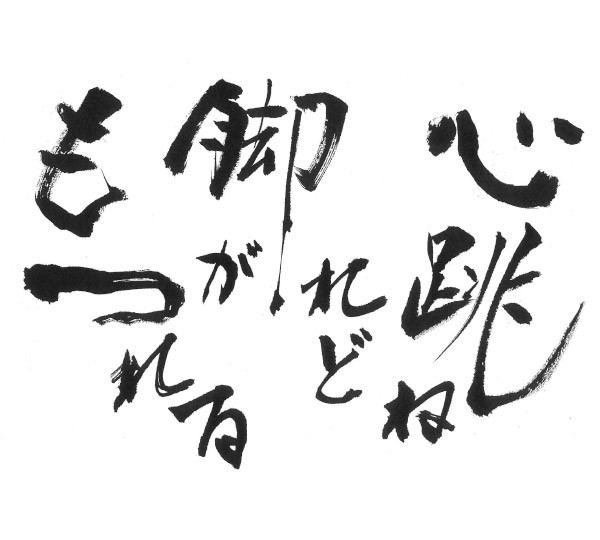 心跳ね
れど
脚が
もつれる